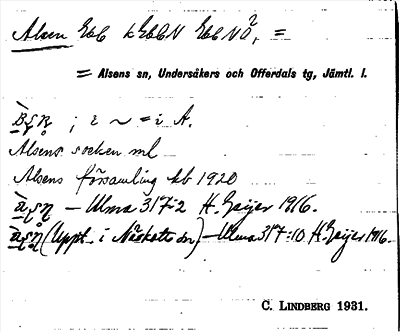 Alsen GbC k GbCN GbCNÖ², =
= Alsens sn, Undersåkers och Offerdals tg, Jämtl. l.
; i ~ = i A.
Alsens socken ml
Alsens församling kb 1920
— Ulma 317:2 H. Geijer 1916.
(Uppt. i Näskotts sn) — Ulma 317:10 H. Geijer 1916.
C. LINDBERG 1931.